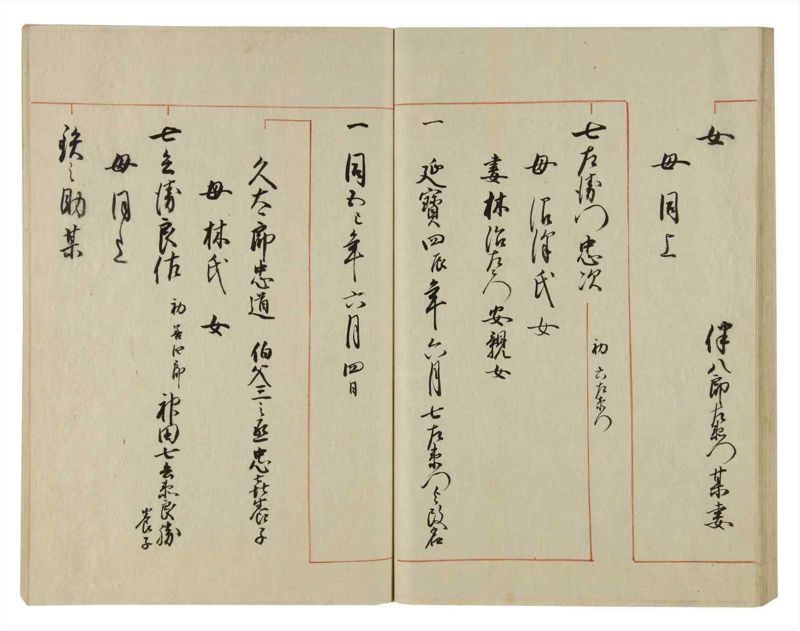 女
伴八郎左衛門某妻
母同上
七左衛門忠次
初六左衛門
母沼津氏女
妻林治左衛門安親女
一 延寶四辰年六月七左衛門与改名
一 同五巳年六月四日
久太郎忠道 伯父三之丞忠喜養子
母林氏女
七兵衛良佐
初 四郎
神田七兵衛良勝
養子
母同上
之助某